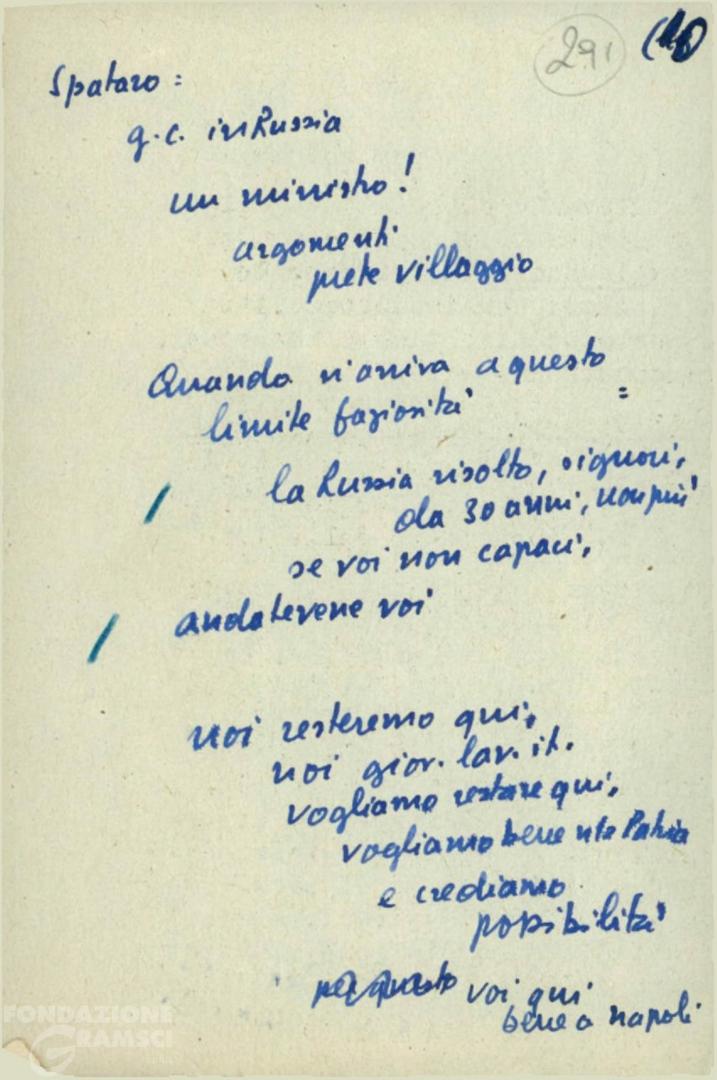 291
Spataro :
g.c. in Russia
un ministro!
argomenti
prete villaggio
Quando si arriva a questo
limite faziosità =
la Russia risolto, signori,
da 30 anni, non più
se voi non capaci,
andatevene voi
noi resteremo qui,
noi giov. lav. it.
vogliamo restare qui,
vogliamo bene nts Patria
e crediamo
possibilità
per questo voi qui
bene a napoli
FONDAZIONE
GRAMSCI